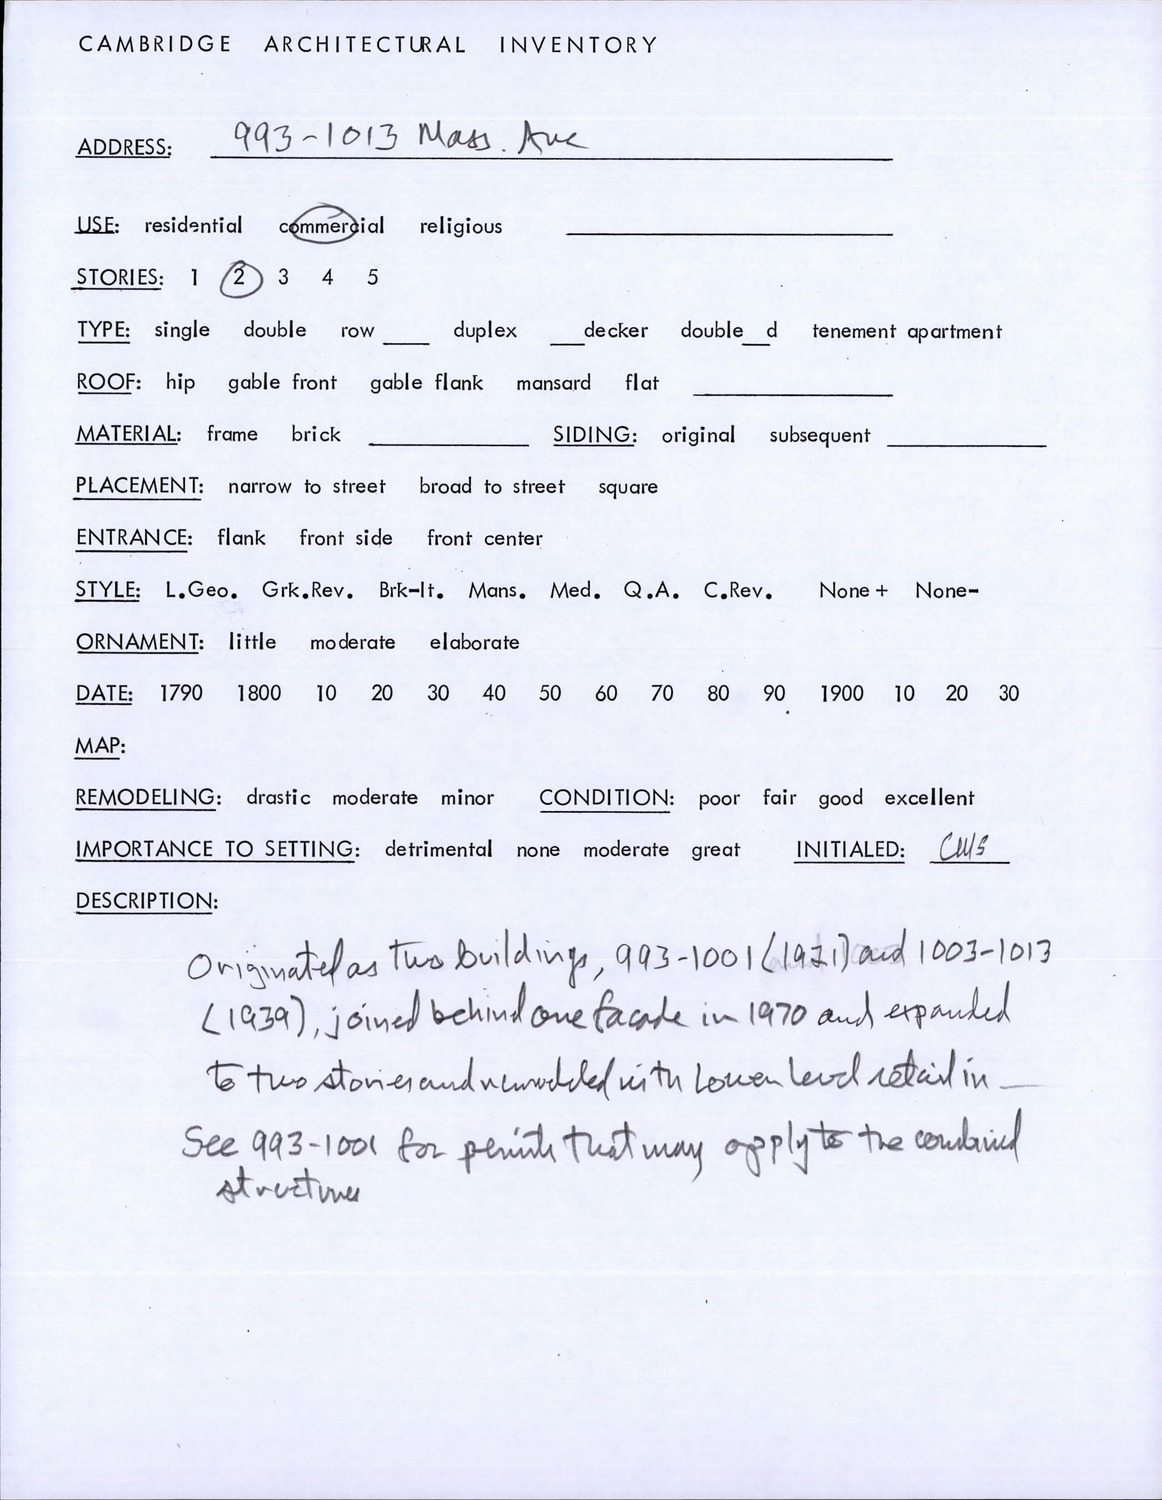 CAMBRIDGE ARCHITECTURAL INVENTORY
ADDRESS: 993-1013 Mass. Ave
USE: residential commercial religious
STORIES: 1 2 3 4 5
TYPE: single double row ___ duplex ___decker double__d tenement apartment
ROOF: hip gable front gable flank mansard flat
MATERIAL: frame brick SIDING: original subsequent
PLACEMENT: narrow to street broad to street square
ENTRANCE: flank front side front center
STYLE: L.Geo. Grk.Rev. Brk-It. Mans. Med. Q.A. C.Rev. None+ None-
ORNAMENT: little moderate elaborate
DATE: 1790 1800 10 20 30 40 50 60 70 80 90 1900 10 20 30
MAP:
REMODELING: drastic moderate minor CONDITION: poor fair good excellent
IMPORTANCE TO SETTING: detrimental none moderate great INITIALED: CMS
DESCRIPTION:
Originated as two buildings, 993-1001 (1921) and 1003-1013
(1939), joined behind one facade in 1970 and expanded
to two stories and remodeled with lower level retail in __
See 993-1001 for permits that may apply to the combined
structures